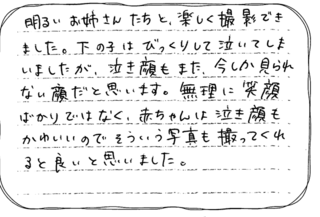 明るいお姉さんたちと、楽しく撮影でき
ました。下の子はびっくりして泣いてしま
いましたが、泣き顔もまた、今しか見られ
ない顔だと思います。無理に笑顔
ばかりではなく、赤ちゃんは泣き顔も
かわいいのでそういう写真も撮ってくれ
ると良いと思いました。